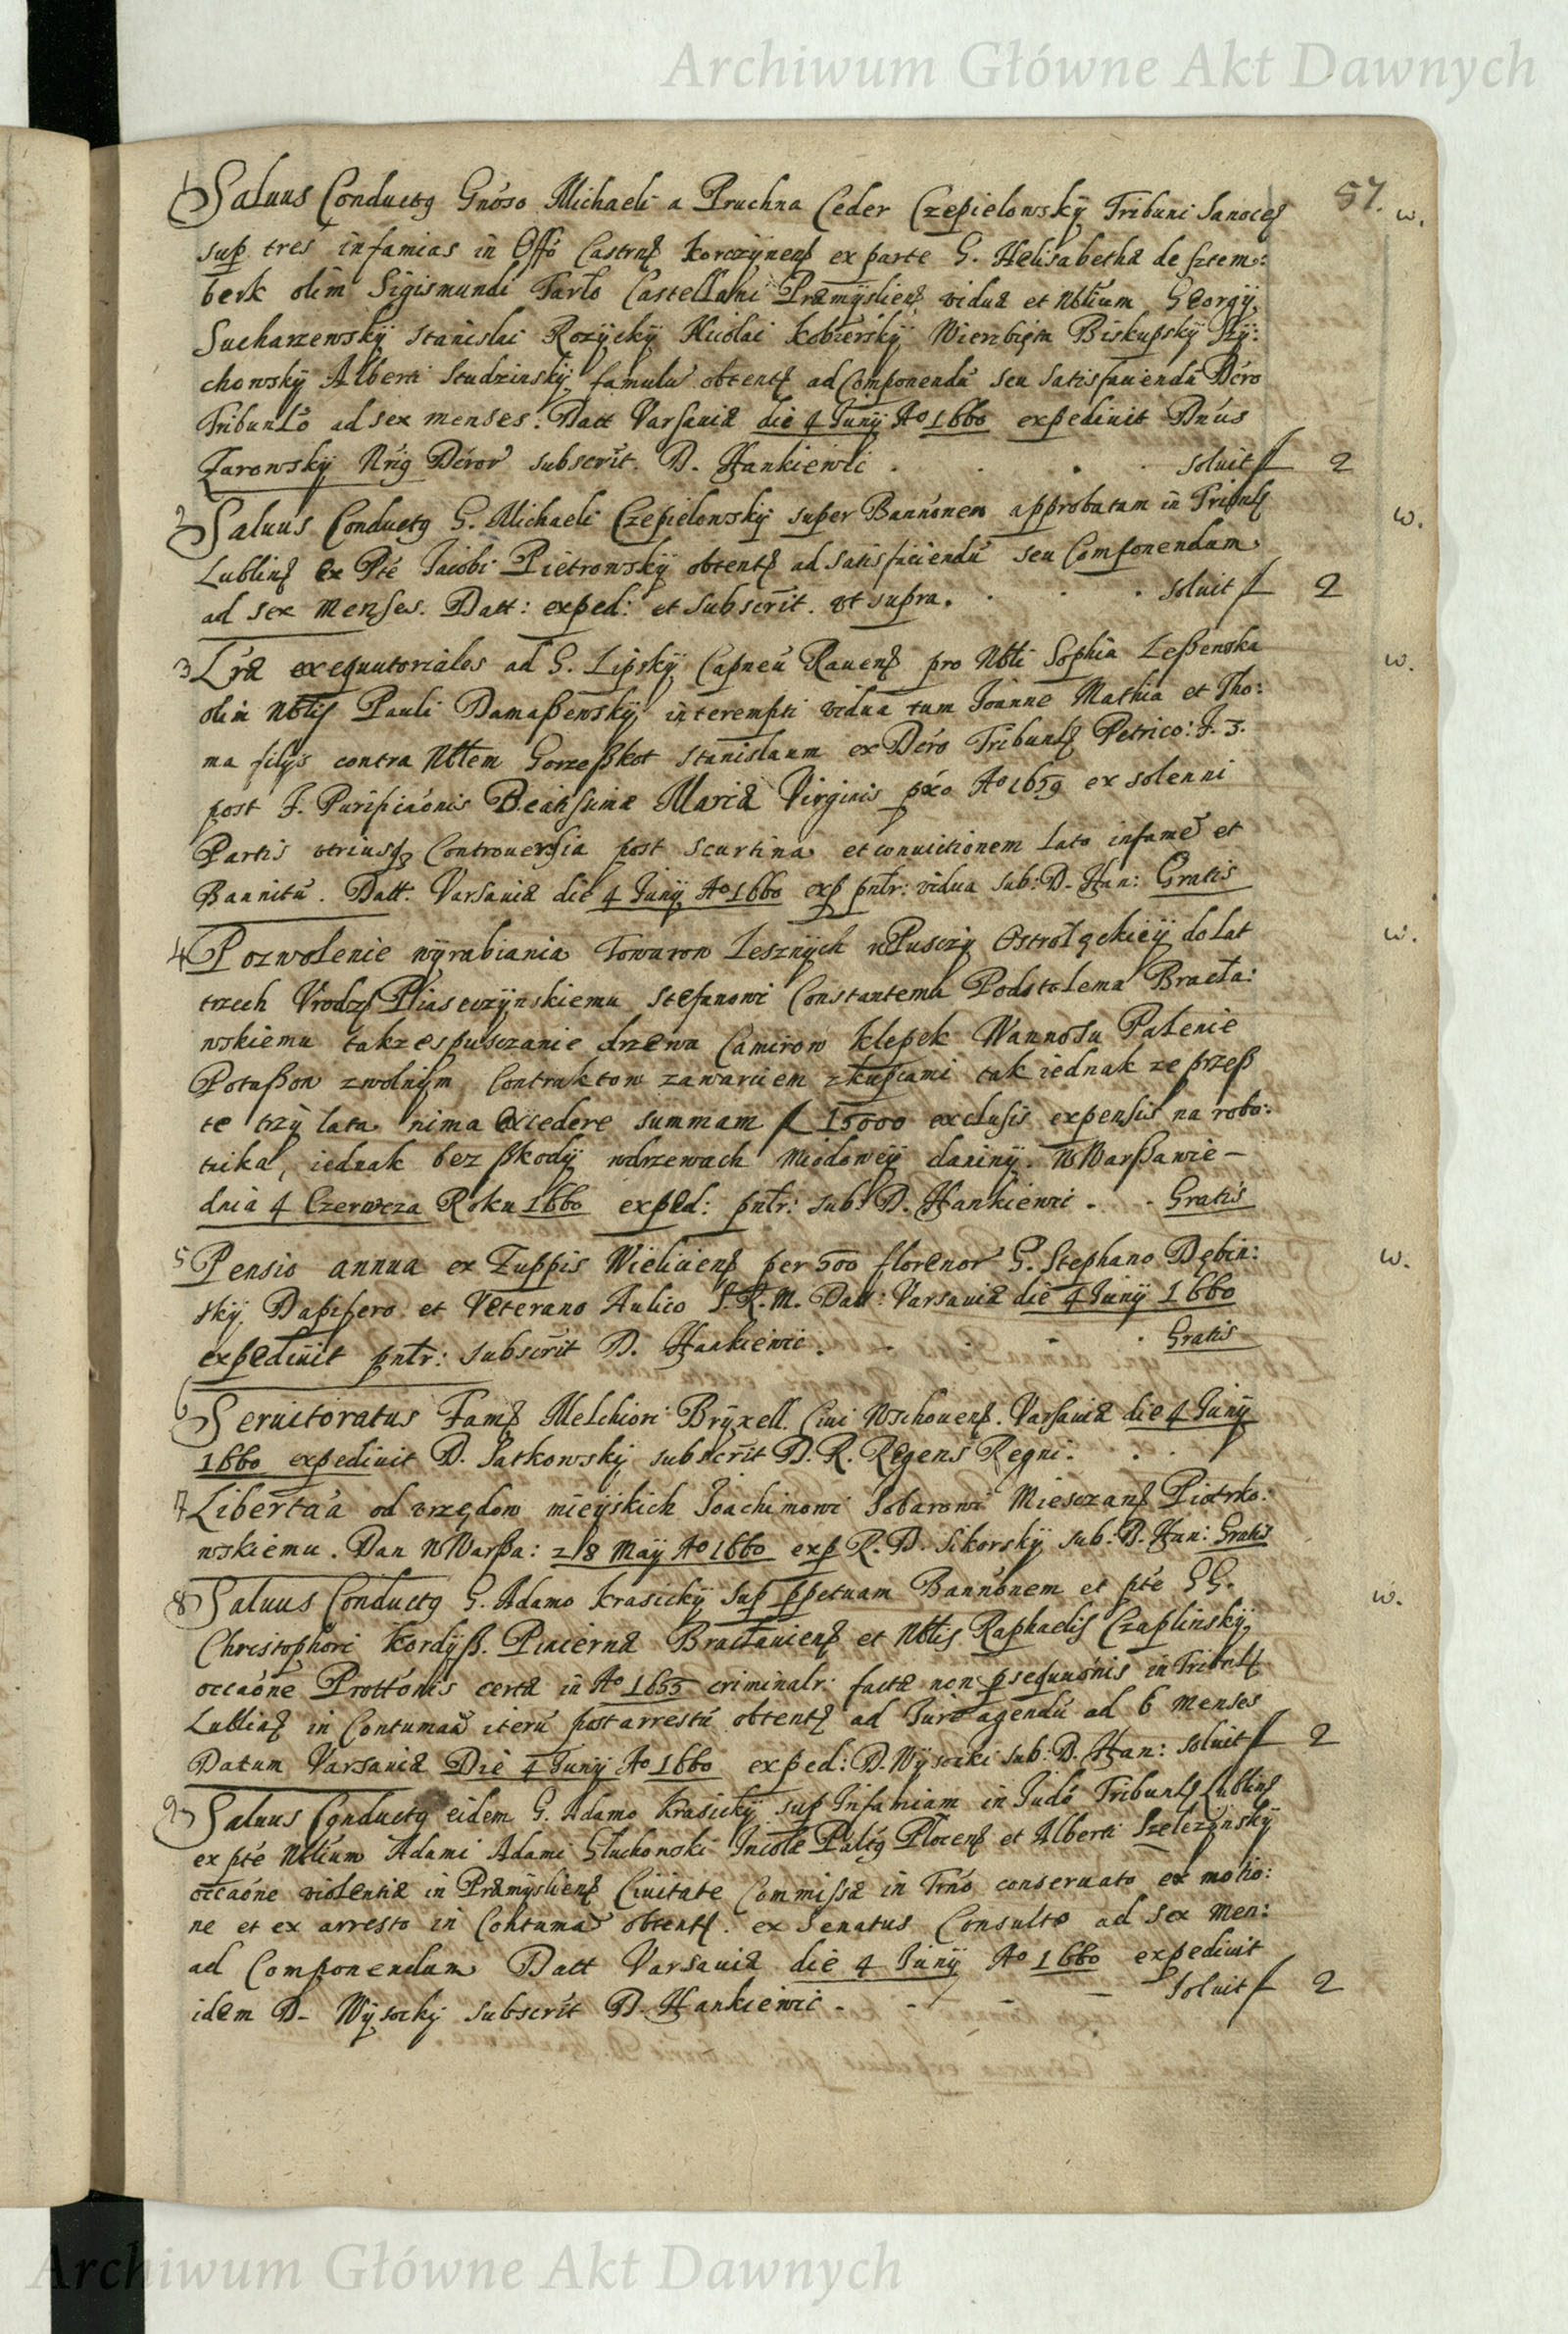 Archiwum Główne Akt Dawnych
57.
1 Saluus Conductq Gnoso Michaeli a Pruchna Ceder Czepielowskÿ Tribuni Sanoceß w.
sup tres infamias in Offo Castrnß Korczÿnenß ex parte G. Helisabethæ de Sztem:
berk olim Sigismundi Tarło Castellani Præmÿslienß viduæ et Nbtium Georgÿ
Sucharzewskÿ Stanislai Rozÿckÿ Nicolai Kobierskÿ Wierzbięta Biskupskÿ Stÿ:
chowskÿ Alberti Studzinskÿ famulū obtentß ad Componendū seu Satisfaciendū Dcro
Tribunlo ad sex menses. Datt Varsauiæ die 4 Junÿ Aº 1660 expediuit Dnus
Zarowskÿ Nrig Dcrorū subscrit. D. Hankiewic . . . . soluit f 2
2 Saluus Conductq G. Michaeli Czepielowskÿ super Bannonem approbatam in Tribnlß w.
Lublinß ex Pte Jacobi Pietrowskÿ obtentß ad satisfaciendū seu Componendum
ad sex menses. Datt: exped: et subscrit. vt supra. . . . soluit f 2
3 Lræ exequutoriales ad G. Lipskÿ Capneū Rauenß pro Nbli Sophia Leßenska w.
olim Nbtis Pauli Damaßenskÿ interempti vidua tum Joanne Mathia et Tho:
ma filÿs contra Nbtem Gorzeßkot Stanislaum ex Dcro Tribunlß Petrico: F. 3.
post F. Purificaonis Beatissimæ Mariæ Virginis pxo Aº 1659 ex solenni
Partis vtriusq Controuersia post scurtina et conuictionem lato infamē et
Bannitū. Datt. Varsauiæ die 4 Junÿ Aº 1660 exp pntr: vidua sub: D. Han: Gratis
4 Pozwolenie wÿrabiania Towarow Lesznÿch w Pusczÿ Ostrołęckieÿ do lat w.
trzech Vrodzß Piasecżÿnskiemu Stefanowi Constantemu Podstolemu Bracła:
wskiemu takze spusczanie drzewa Camirow Klepek Wannosu Palenie
Potaßow z wolnÿm Contraktow zawarciem z kupcami tak iednak ze przeß
te trzÿ lata nima excedere summam f 15000 exclusis expensis na robo:
tnika, iednak bez ßkodÿ w drzewach miodoweÿ daninÿ. W Warßawie –
dnia 4 Czerwcza Roku 1660 exped: pntr: sub: D. Hankiewic . . Gratis
5 Pensio annua ex Zuppis Wieliciensß per 500 florenorū G. Stephano Dębin: w.
skÿ Dapifero et Veterano Aulico S. R. M. Datt: Varsauiæ die 4 Junÿ 1660
expediuit pntr: subscrit D. Hankiewic . . . . . Gratis
6 Seruitoratus Famß Melchiori Brÿxell. Ciui Wschouenß. Varsauiæ die 4 Junÿ
1660 expediuit D. Satkowskÿ subscrit D. R. Regens Regni. . .
7 Libertaa od vrzędow mieÿskich Joachimowi Sobarowi Miesczanß Piotrko:
wskiemu. Dan w Warßa: 28 Maÿ Aº 1660 exp R. D. Sikorskÿ sub: D. Han: Gratis
8 Saluus Conductq G. Adamo Krasickÿ sup ppetuam Bannonem et pte GG. w.
Christophori Kordÿß. Pincernæ Bracłauienß et Nbtis Raphaelis Czaplinskÿ
occaone Prottonis certæ in Aº 1655 criminalr: factæ non psequuonis in Tribnlß
Lublinß in Contumaā iterū post arrestū obtentß ad Jure agendū ad 6 menses
Datum Varsauiæ Die 4 Junÿ Aº 1660 exped: D. Wÿsocki sub: D. Han: soluit f 2
9 Saluus Conductq eidem G. Adamo Krasickÿ sup Infamiam in Judo Tribunlß Lublinß
ex pte Nbtium Adami Adami Głuchowski Incolæ Paltq Plocenß et Alberti Szeleżÿnskÿ
occaone violentiæ in Præmÿslienß Ciuitate Commissæ in Trno conseruato ex motio:
ne et ex arresto in Contumaā obtentß. ex Senatus Consulto ad sex men:
ad Componendum Datt Varsauiæ die 4 Junÿ Aº 1660 expediuit
idem D. Wÿsockÿ subscrit D. Hankiewic . - - - soluit f 2
Archiwum Główne Akt Dawnych